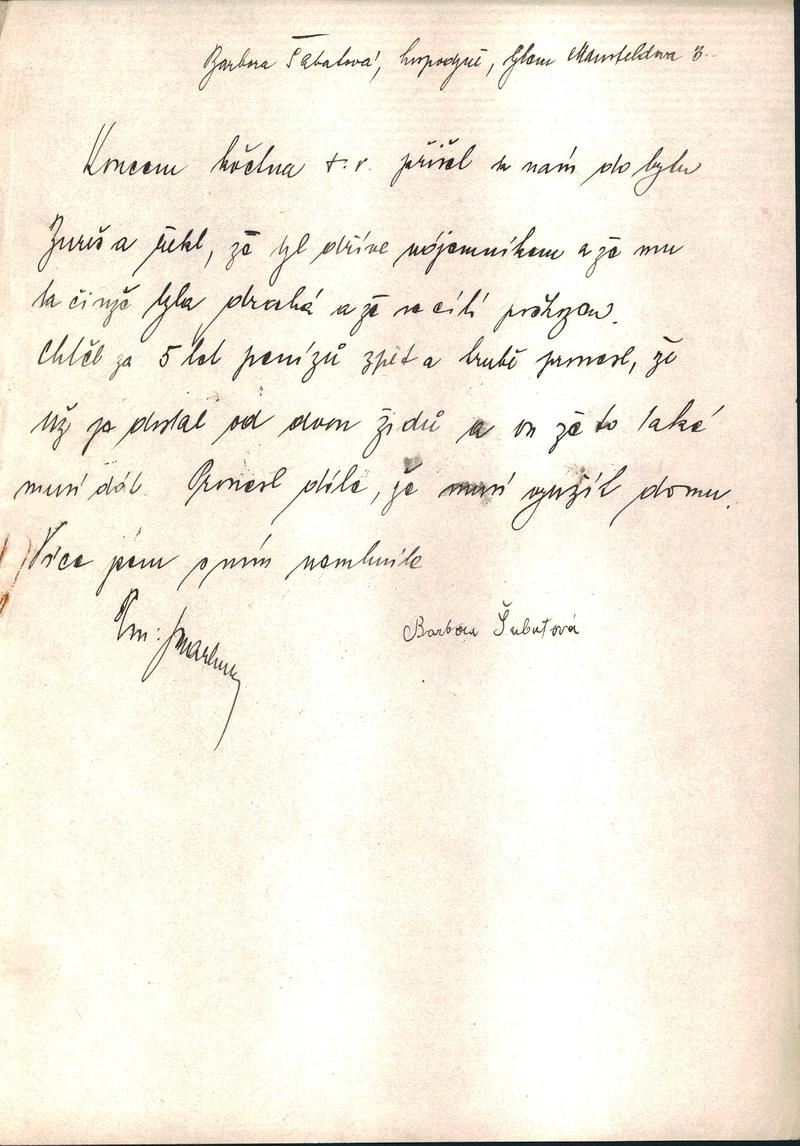 Barbora Šabatová, hospodyně, bytem Mansfeldova 3.
Koncem května t. r. přišel k nám do bytu
Bureš a řekl, že byl dříve nájemníkem a že mu
ta činže byla drahá a že se cítí
Chtěl za 5 let penízů zpět a hrubě pronesl, že
už je dostal od dvou židů a on že to také
musí dát. Pronesl dále, že musí využít domu.
Více jsem s ním nemluvila
Barbora Šabatová